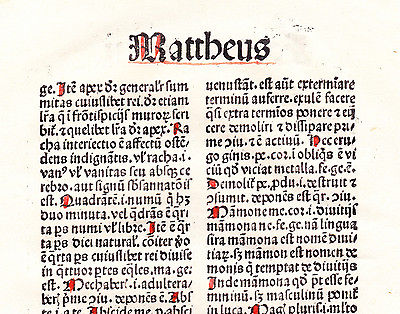 Mattheus
ge. Itē apex dr̄ generalr̄ sum
mitas cuiuslibet rei. dr̄ etiam
lr̄a q̄ i frōtispicijs muror̄ scri
bit̄. ⁊ quelibet lr̄a dr̄ apex. Ra
cha interiectio ē affectū ostē
dens indignātis. vl̄ racha .i.
van⁹ vl̄ vanitas seu absq̄ ce
rebro. aut signū sbsannatōis
est. Quadrans .i. numū q̄ hȝ
duo minuta. vel q̄drās ē q̄rta
ps numi vel libre. Itē ē q̄r
ta ps diei naturał. cōiter ꝟo
ē q̄rta ps cuiuslibet rei diuise
in q̄tuor ptes eq̄les. ma. ge.
est. Mechaber̄ .i. adultera
ber̄. pme ɔiu. depones ē. Abs
te i a te. Abscide me p absci
venustant̄. est aūt extermīare
terminū auferre. exulē facere
qsi extra termios ponere ⁊ eij
cere demoliri ⁊ dissipare pri
me ɔiu. ⁊ ē actiuū. Hec eru
go ginis. pe. cor. i obliq̄s ē vi
ciū qd viciat metalla. fe. ge ē.
Demolit̄. pe. pdu. i destruit ⁊
ɔsumit. deponēs est qr̄. ɔiu.
Māmone me. cor. i diuitijs
māmona ne. fe. ge. nā lingua
sira māmona est nomē diui
tiar̄. sȝ māmon est nomen de
monis q̄ temptat de diuitijs
Inde māmona qd pt esse fe
mininū. sȝ masculinū ponit̄
in luca. Maḡ plurisi. mlto